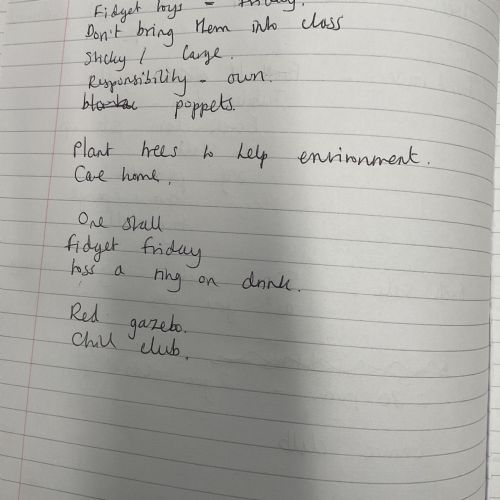 Fidget toys - Friday.
Don't bring them into class
Sticky / Large.
Responsibility - own.
poppets.
Plant trees to help environment.
Care home.
One stall
fidget friday
toss a ring on drink.
Red gazebo.
Chill club.